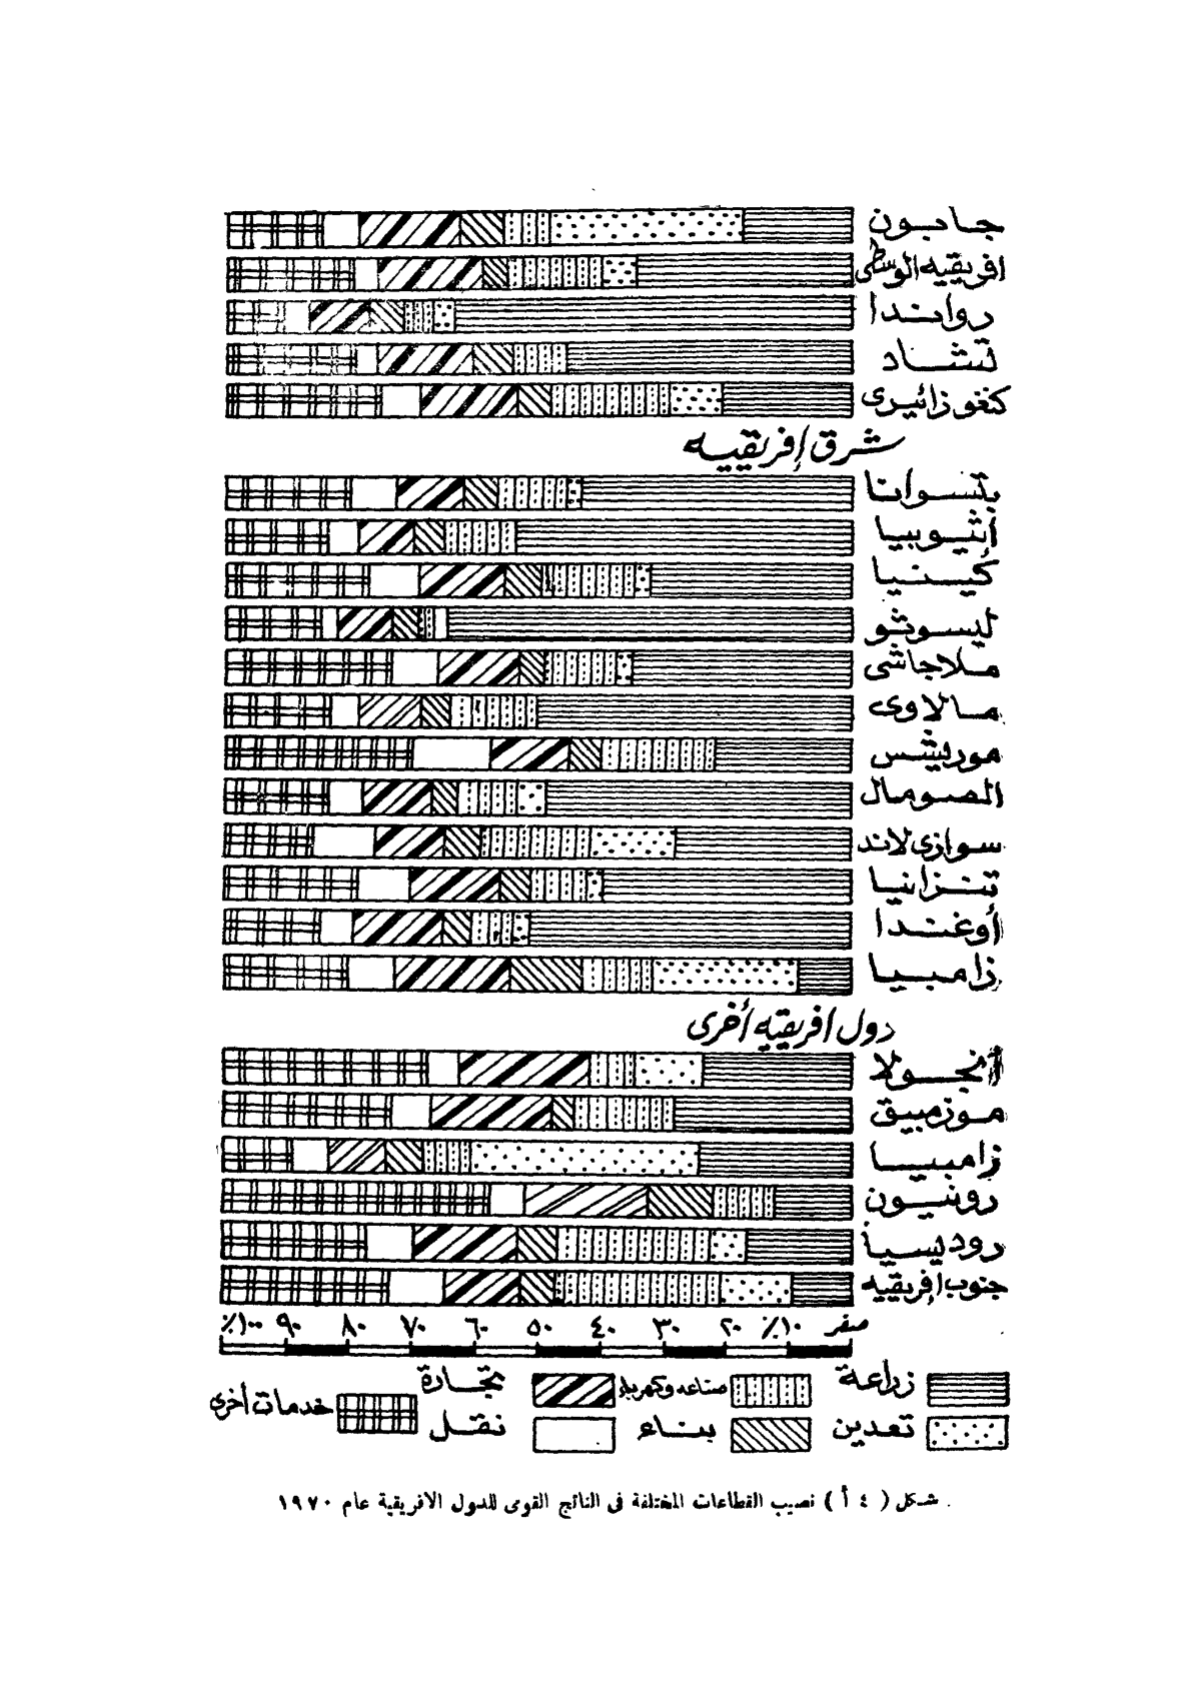 جابون
افريقيه الوسطى
رواندا
تشاد
كنغو زائيرى
شرق إفريقيه
بتسوانا
أثيوبيا
كينيا
ليسوثو
ملاجاشى
مالاوى
موريتس
الصومال
سوازى لاند
تنزانيا
أوغندا
زامبيا
دول افريقيه أخرى
أنجولا
موزمبيق
زامبيسا
رونيون
روديسيا
جنوب إفريقيه
صفر ١٠٪ ٢٠ ٣٠ ٤٠ ٥٠ ٦٠ ٧٠ ٨٠ ٩٠ ١٠٠٪
زراعة صناعه وكهرباء تجارة خدمات أخرى
تعدين بناء نقل
شكل ( ٤ أ ) نصيب القطاعات المختلفة فى الناتج القوى للدول الافريقية عام ١٩٧٠